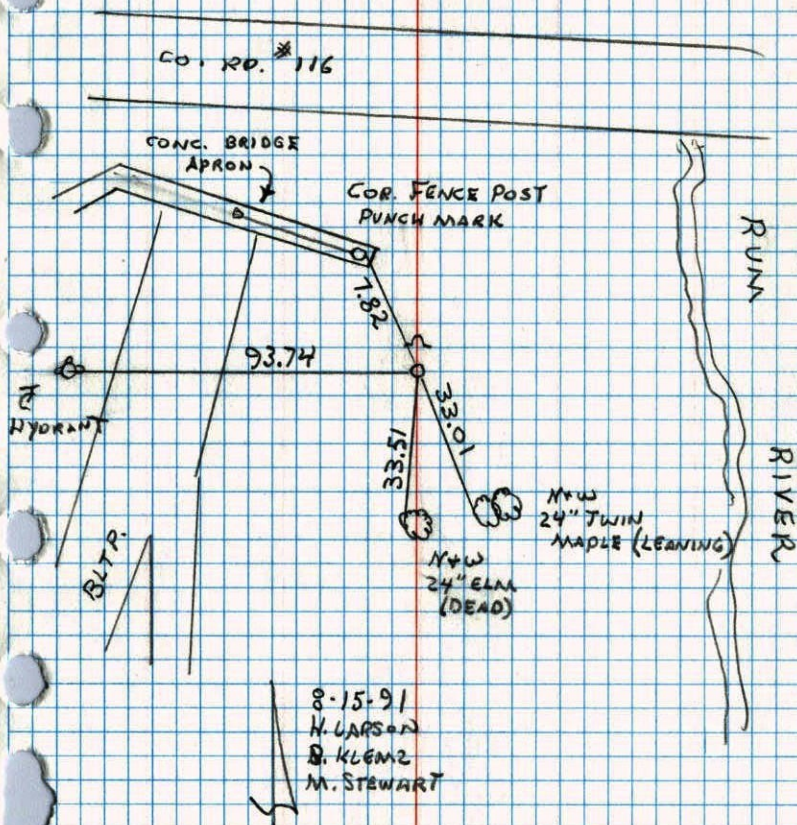 CO. RD. #116
CONC. BRIDGE
APRON
COR. FENCE POST
PUNCH MARK
7.82
93.74
℄
HYDRANT
33.01
33.51
N+W
24" TWIN
MAPLE (LEANING)
N+W
24" ELM
(DEAD)
BLTP.
RUM
RIVER
8-15-91
H. LARSON
B. KLEMZ
M. STEWART